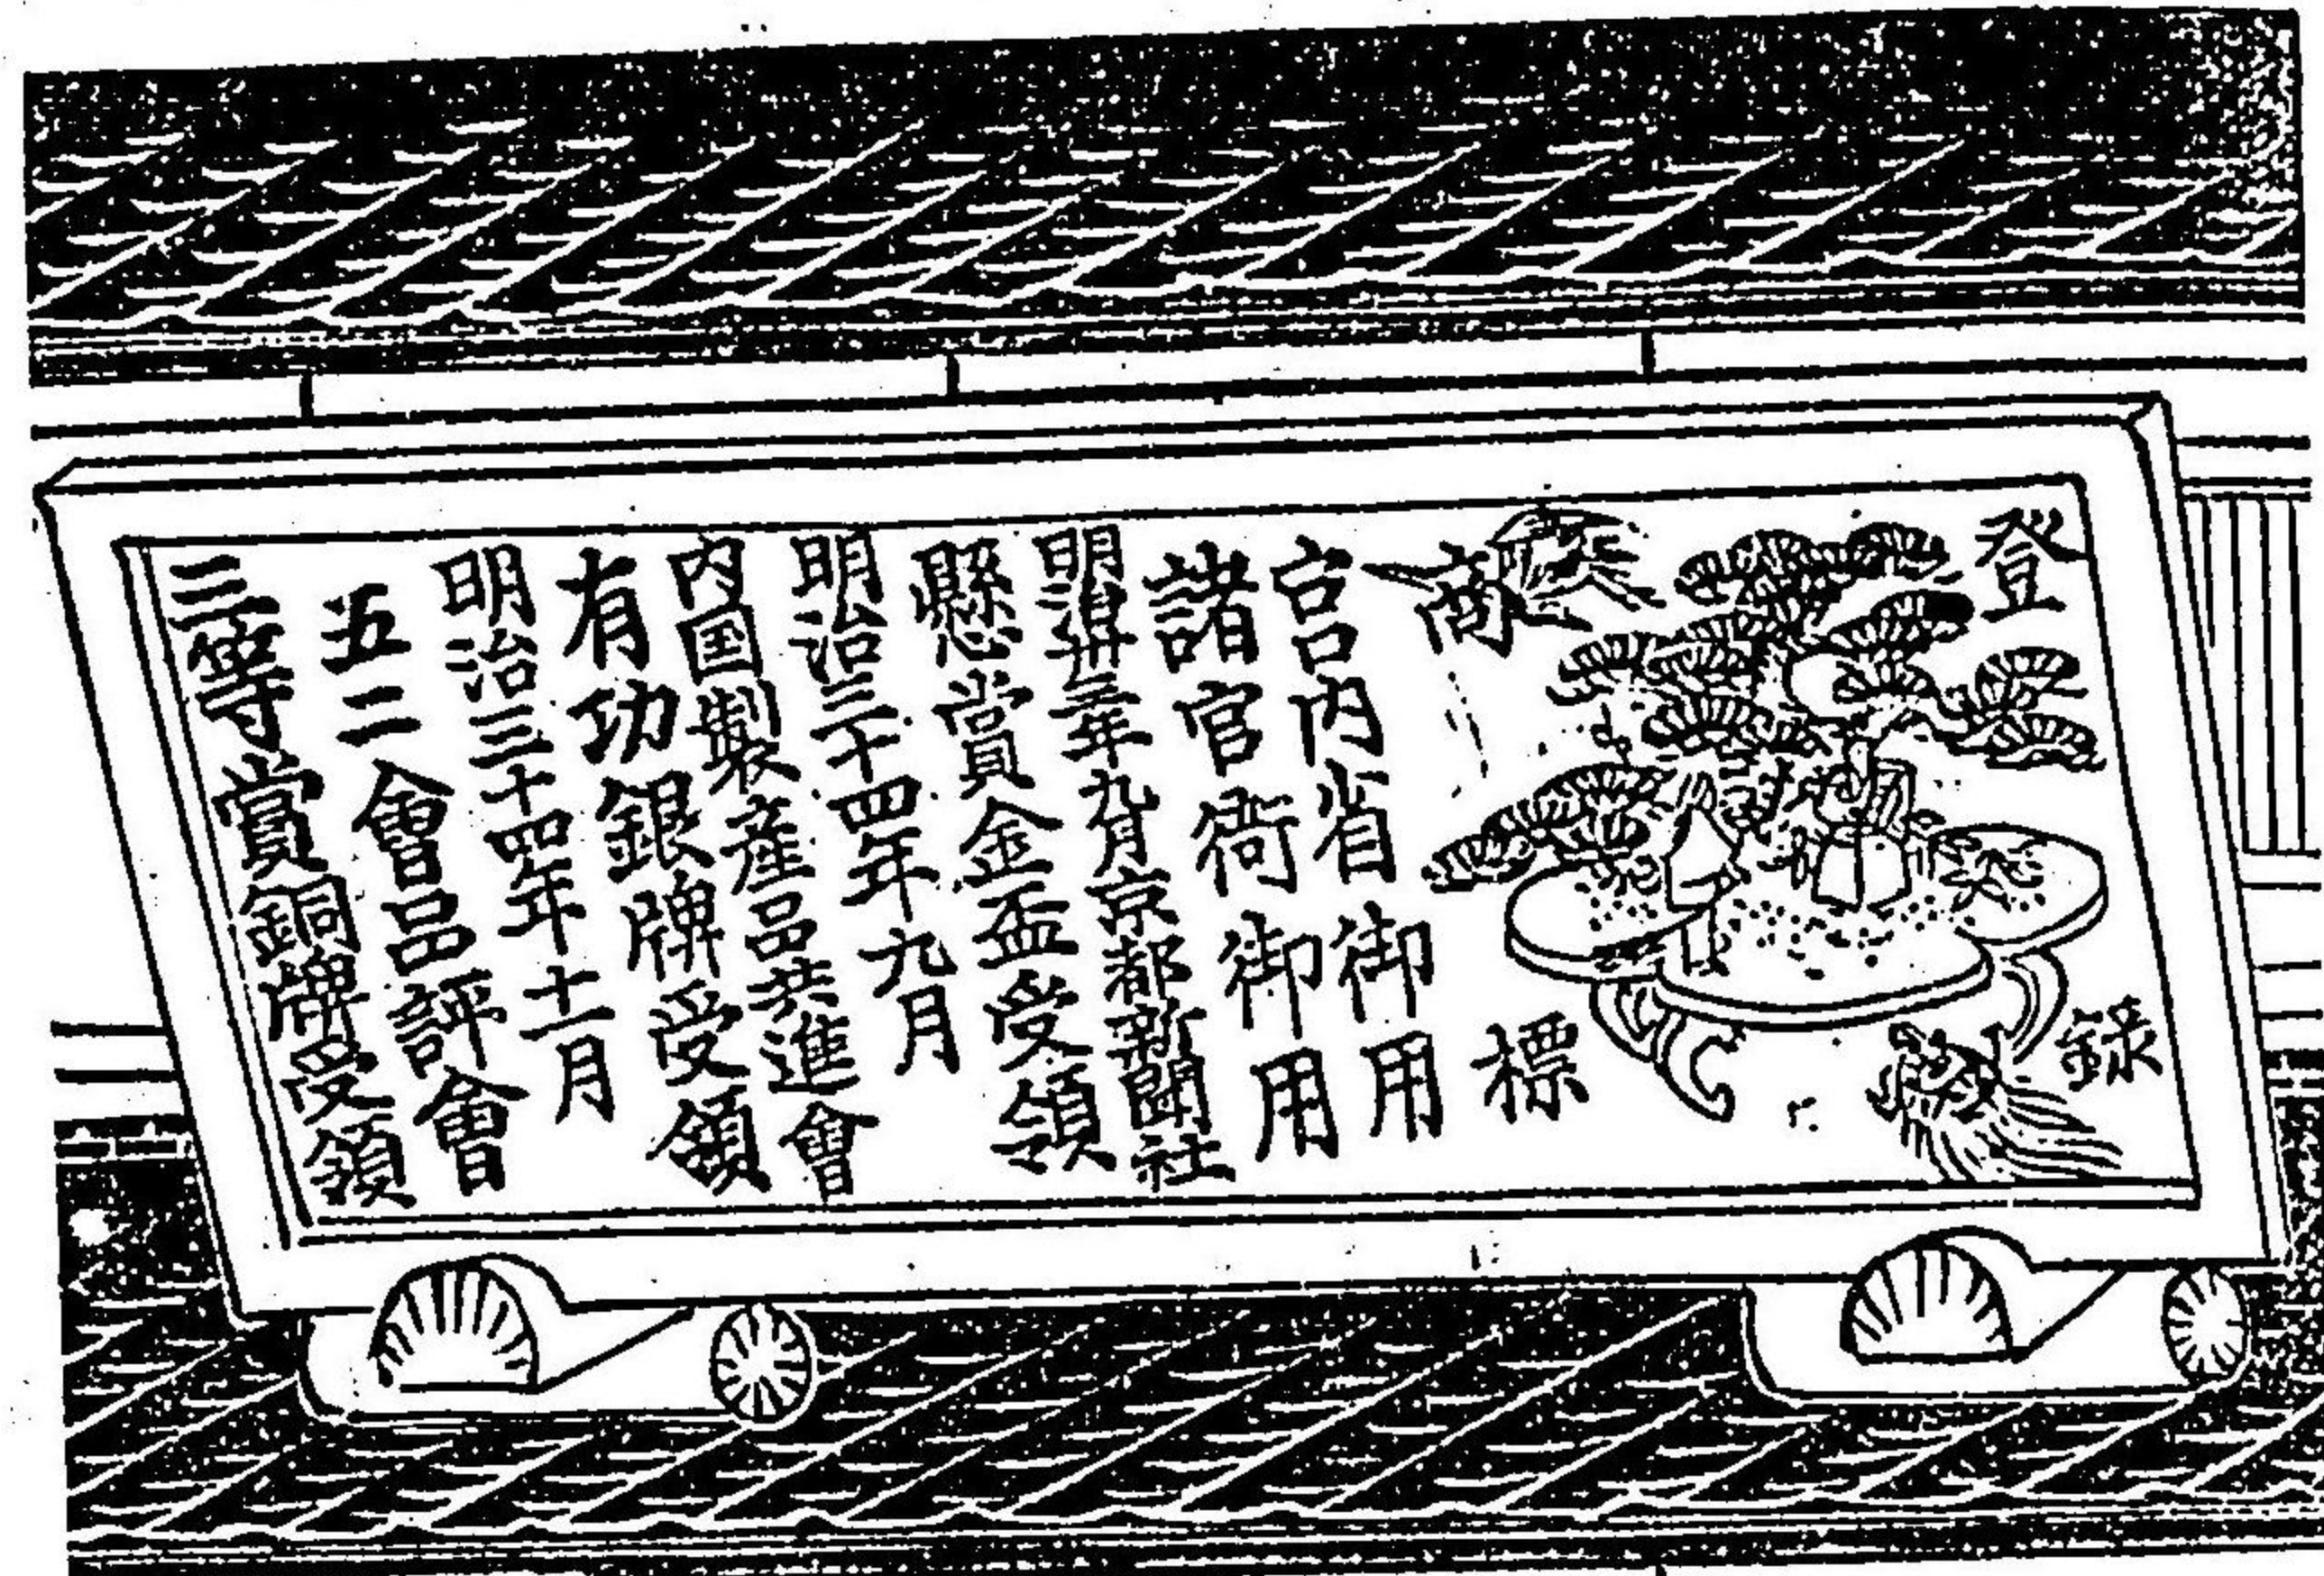 登録
商標
宮内省御用
諸官衙御用
明治卅三年九月京都新聞社
懸賞金盃受領
明治三十四年九月
内国製産品共進會
有功銀牌受領
明治三十四年十一月
五二會品評會
三等賞銅牌受領